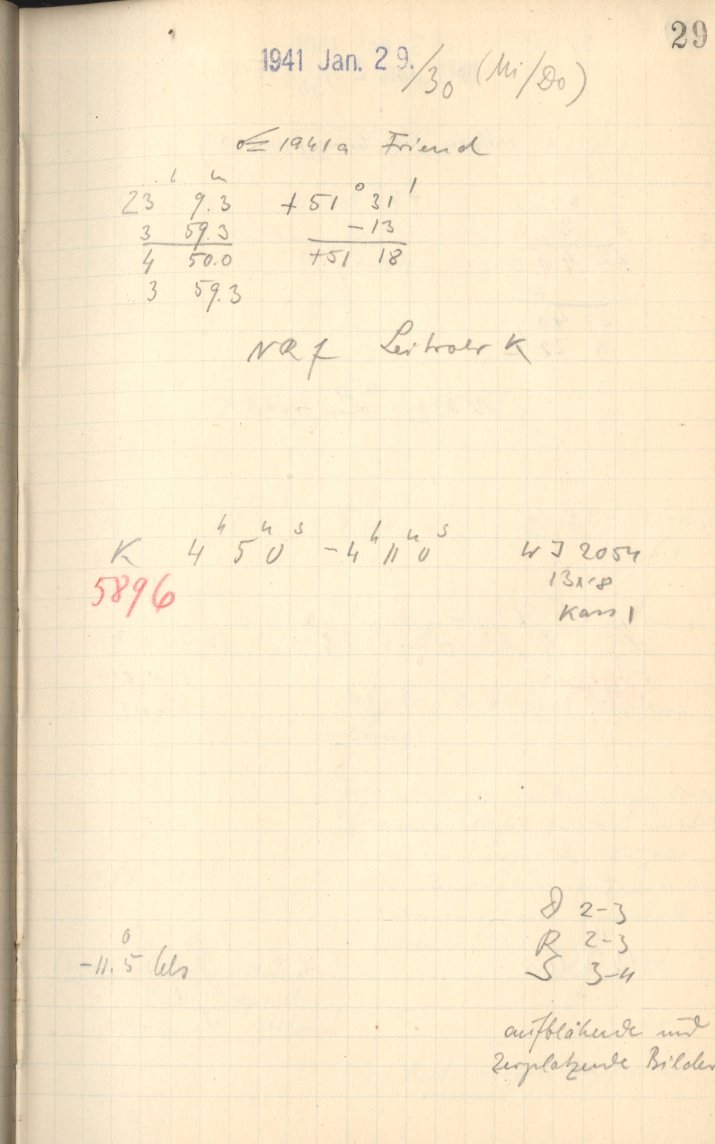 29
1941 Jan. 29./30 (Mi/Do)
☄ 1941a Friend
23 h 9.3 m +51° 31'
3 59.3 -13
4 50.0 +51 18
3 59.3
NRf Leitrohr K
K 4 h 5 m 0 s - 4 h 11 m 0 s WJ 2054
5896 13x18
Kass 1
D 2-3
R 2-3
-11.5° S 3-4
aufblähende und
zerplatzende Bilder